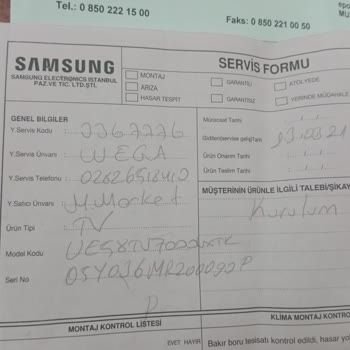 Tel.: 0 850 222 15 00
Faks: 0 850 221 00 50
SAMSUNG
SAMSUNG ELECTRONICS İSTANBUL
PAZ.VE TİC. LTD.ŞTİ.
SERVİS FORMU
MONTAJ
ARIZA
HASAR TESPİT
GARANTİLİ
GARANTİSİZ
ATÖLYEDE
YERİNDE MÜDAHALE
GENEL BİLGİLER
Y.Servis Kodu : 3367776
Y.Servis Ünvanı : WEGA
Y.Servis Telefonu : 02626518410
Y.Satıcı Ünvanı : M.Market
Ürün Tipi : TV
Model Kodu
Seri No
Müracaat Tarihi
Ürün Onarım Tarihi
Ürün Teslim Tarihi
13.03.21
MÜŞTERİNİN ÜRÜNLE İLGİLİ TALEBİ/ŞİKAY
Kurulum
MONTAJ KONTROL LİSTESİ
KLİMA MONTAJ KONTRO
EVET HAYIR
Bakır boru tesisatı kontrol edildi, hasar yo